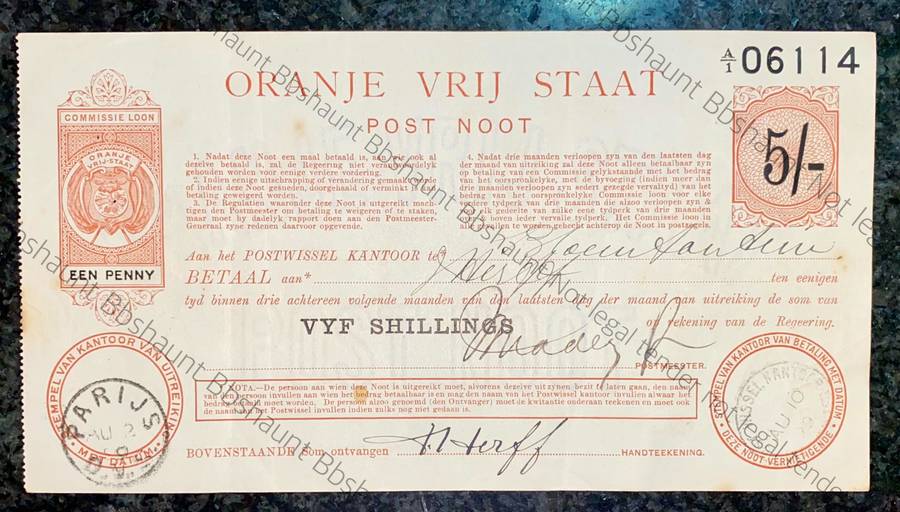 A/1 06114
ORANJE VRIJ STAAT
POST NOOT
COMMISSIE LOON
ORANJE
VRIJ-STAAT
EEN PENNY
5/-
1. Nadat deze Noot een maal betaald is, aan wie ook al
dezelve betaald is, zal de Regeering niet verantwoordelyk
gehouden worden voor eenige verdere vordering.
2. Indien eenige uitschrapping of verandering gemaakt worde
of indien deze Noot gesneden, doorgehaald of verminkt is, mag
betaling geweigerd worden.
3. De Regulatien waaronder deze Noot is uitgereikt mach-
tigen den Postmeester om betaling te weigeren of te staken,
maar moet hy dadelyk rapport doen aan den Postmeester-
Generaal zyne redenen daarvoor opgevende.
4. Nadat drie maanden verloopen zyn van den laatsten dag
der maand van uitreiking zal deze Noot alleen betaalbaar zyn
op betaling van een Commissie gelykstaande met het bedrag
van het oorspronkelyke, met de byvoeging (indien meer dan
drie maanden verloopen zyn sedert gezegde vervaltyd) van het
bedrag van de oorspronkelyke Commissie loon voor elke
verdere tydperk van drie maanden die alzoo verloopen zyn &
voor elk gedeelte van zulke eene tydperk van drie maanden
boven ieder vervalle tydperk. Het Commissie loon in
alle gevallen te worden gehecht achterop de Noot in postzegels.
Aan het POSTWISSEL KANTOOR te
BETAAL aan* ten eenigen
tyd binnen drie achtereen volgende maanden van den laatsten dag der maand van uitreiking de som van
VYF SHILLINGS op rekening van de Regeering.
POSTMEESTER.
NOTA.—De persoon aan wien deze Noot is uitgereikt moet, alvorens dezelve uit zynen bezit te laten gaan, den naam
van den persoon invullen aan wien het bedrag betaalbaar is en mag den naam van het Postwissel kantoor invullen alwaar het
bedrag betaald moet worden. De persoon alzoo genoemd (den Ontvanger) moet de kwitantie onderaan teekenen en moet ook
de naam van het Postwissel invullen indien zulks nog niet gedaan is.
BOVENSTAANDE Som ontvangen H Herff HANDTEEKENING.
STEMPEL VAN KANTOOR VAN UITREIKING
MET DATUM.
PARIJS
AU 2
O.V.S.
STEMPEL VAN KANTOOR VAN BETALING MET DATUM.
DEZE NOOT VERNIETIGENDE
AU 10
Bbshaunt Not legal tender